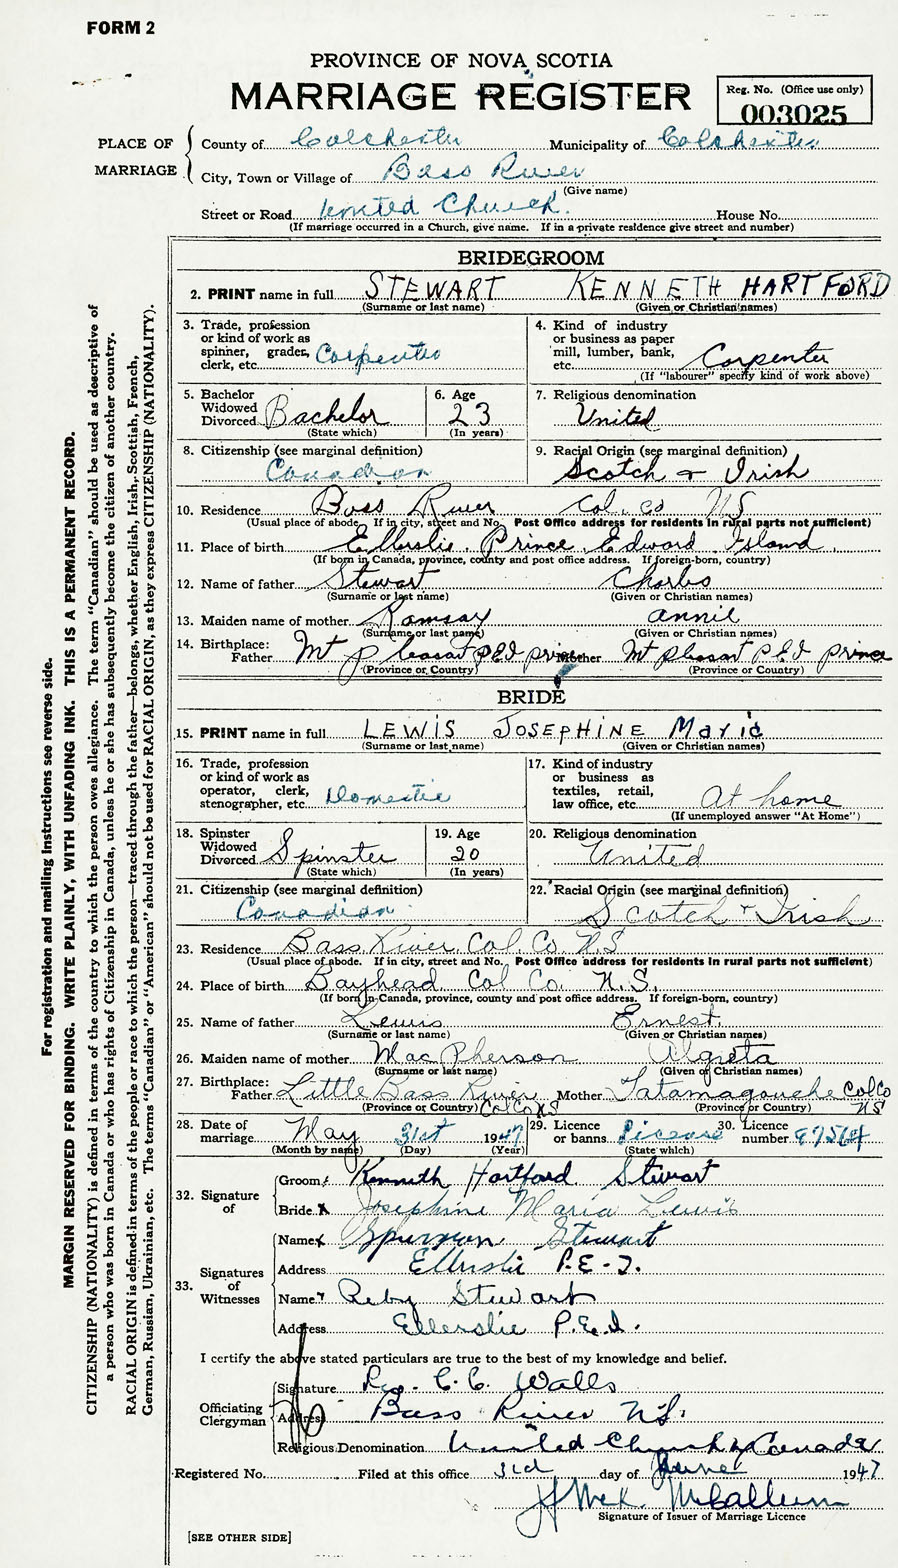 FORM 2
PROVINCE OF NOVA SCOTIA
MARRIAGE REGISTER
Reg. No. (Office use only)
003025
PLACE OF MARRIAGE
County of Colchester Municipality of Colchester
City, Town or Village of Bass River
(Give name)
Street or Road United Church. House No.
(If marriage occurred in a Church, give name. If in a private residence give street and number)
BRIDEGROOM
2. PRINT name in full STEWART KENNETH HARTFORD
(Surname or last name) (Given or Christian names)
3. Trade, profession or kind of work as spinner, grader, clerk, etc. Carpenter
4. Kind of industry or business as paper mill, lumber, bank, etc. Carpenter
(If "labourer" specify kind of work above)
5. Bachelor Widowed Divorced Bachelor
(State which)
6. Age 23
(In years)
7. Religious denomination United
8. Citizenship (see marginal definition) Canadian
9. Racial Origin (see marginal definition) Scotch + Irish
10. Residence Bass River Col. Co NS
(Usual place of abode. If in city, street and No. Post Office address for residents in rural parts not sufficient)
11. Place of birth Ellerslie. Prince Edward Island.
(If born in Canada, province, county and post office address. If foreign-born, country)
12. Name of father Stewart Charles
(Surname or last name) (Given or Christian names)
13. Maiden name of mother Ramsay Annie
(Surname or last name) (Given or Christian names)
14. Birthplace: Father Mt Pleasant P E I Prince Mother Mt Pleasant P E I Prince
(Province or Country) (Province or Country)
BRIDE
15. PRINT name in full LEWIS JOSEPHINE Maria
(Surname or last name) (Given or Christian names)
16. Trade, profession or kind of work as operator, clerk, stenographer, etc. Domestic
17. Kind of industry or business as textiles, retail, law office, etc. At home
(If unemployed answer "At Home")
18. Spinster Widowed Divorced Spinster
(State which)
19. Age 20
(In years)
20. Religious denomination United
21. Citizenship (see marginal definition) Canadian
22. Racial Origin (see marginal definition) Scotch + Irish
23. Residence Bass River Col. Co. N.S
(Usual place of abode. If in city, street and No. Post Office address for residents in rural parts not sufficient)
24. Place of birth Bayhead Col Co. N.S.
(If born in Canada, province, county and post office address. If foreign-born, country)
25. Name of father Lewis Ernest.
(Surname or last name) (Given or Christian names)
26. Maiden name of mother MacPherson Algreta
(Surname or last name) (Given or Christian names)
27. Birthplace: Father Little Bass River Col Co NS Mother Tatamagouche Col Co NS
(Province or Country) (Province or Country)
28. Date of marriage May 31st 1947
(Month by name) (Day) (Year)
29. Licence or banns License
(State which)
30. Licence number 97564
32. Signature of
Groom Kenneth Hartford Stewart
Bride x Josephine Maria Lewis
33. Signatures of Witnesses
Name x Spurgeon Stewart
Address Ellerslie P.E-I.
Name Reby Stewart
Address Ellerslie P.E.I.
I certify the above stated particulars are true to the best of my knowledge and belief.
Officiating Clergyman
Signature Rev. C. C. Walls
Address Bass River N.S.
Religious Denomination United Church of Canada
Registered No. Filed at this office 3rd day of June 1947
McCallum
Signature of Issuer of Marriage Licence
[SEE OTHER SIDE]
For registration and mailing instructions see reverse side.
MARGIN RESERVED FOR BINDING. WRITE PLAINLY, WITH UNFADING INK. THIS IS A PERMANENT RECORD.
CITIZENSHIP (NATIONALITY) is defined in terms of the country to which the person owes allegiance. The term "Canadian" should be used as descriptive of
a person who was born in Canada or who has rights of Citizenship in Canada, unless he or she has subsequently become the citizen of another country.
RACIAL ORIGIN is defined in terms of the people or race to which the person—traced through the father—belongs, whether English, Irish, Scottish, French,
German, Russian, Ukrainian, etc. The terms "Canadian" or "American" should not be used for RACIAL ORIGIN, as they express CITIZENSHIP (NATIONALITY).